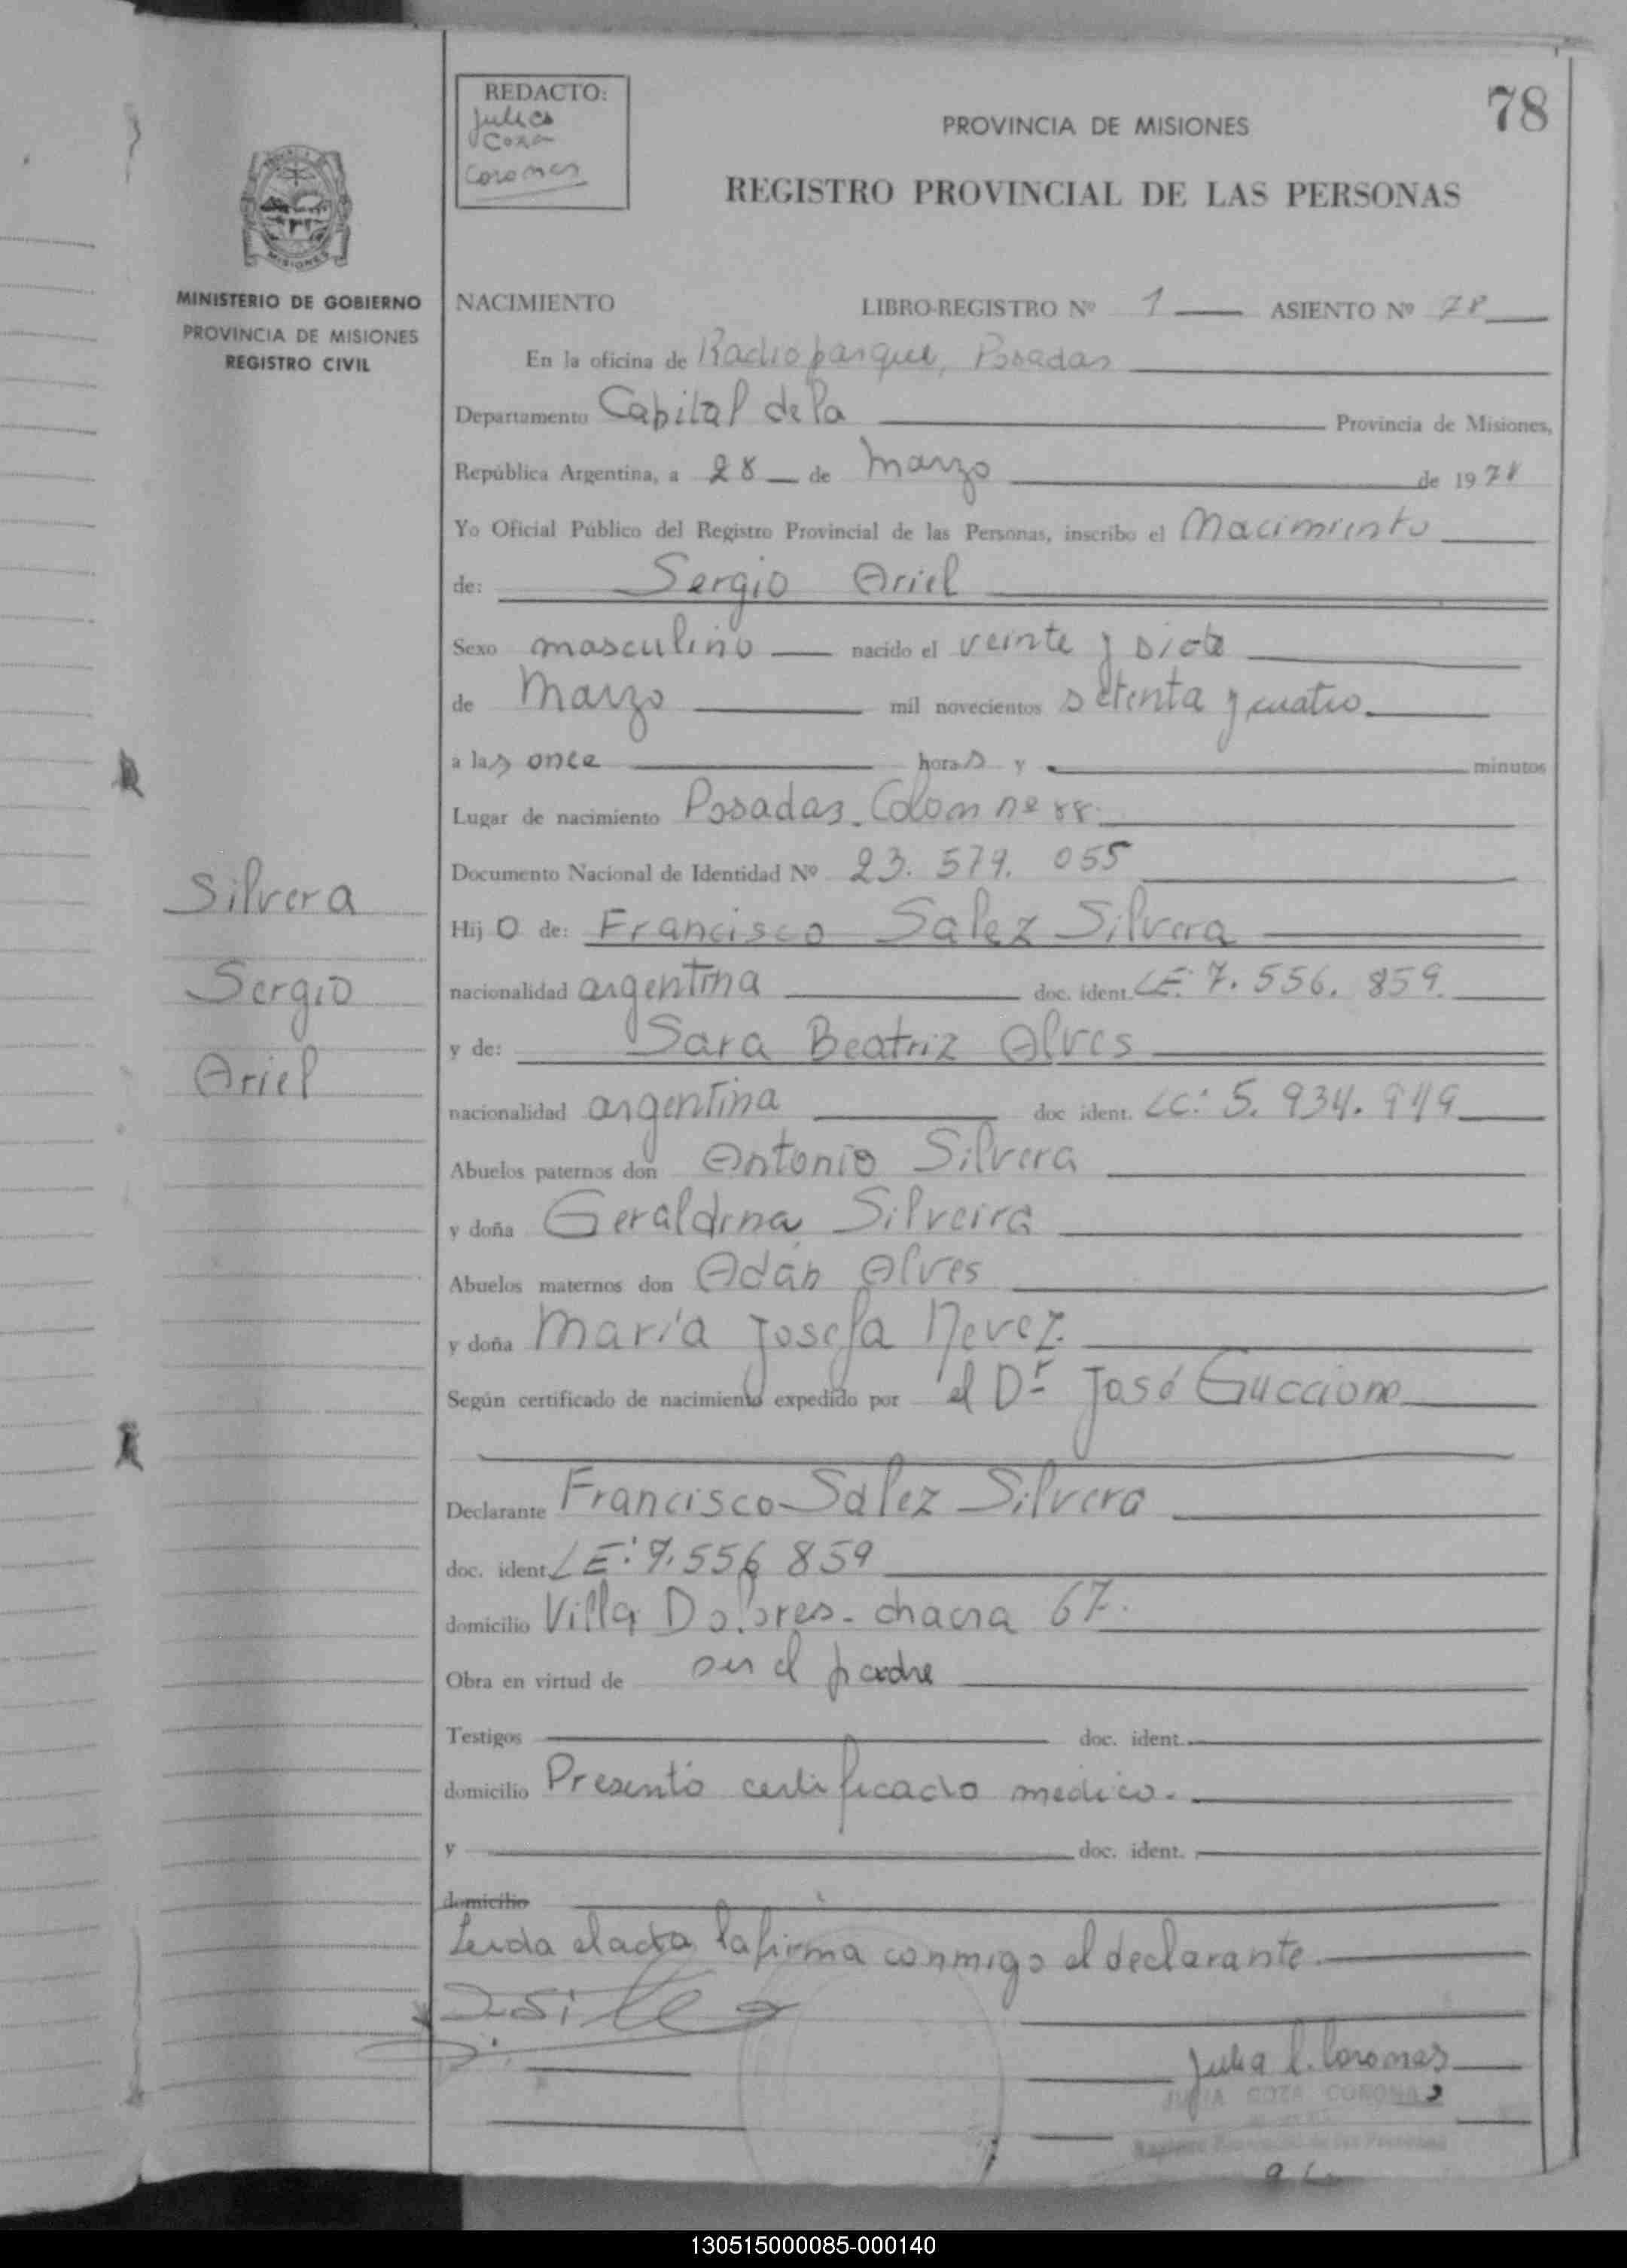 REDACTO:
Julia
Coza
Coronas
78
PROVINCIA DE MISIONES
REGISTRO PROVINCIAL DE LAS PERSONAS
MISIONES
MINISTERIO DE GOBIERNO
PROVINCIA DE MISIONES
REGISTRO CIVIL
NACIMIENTO LIBRO-REGISTRO Nº 1 ASIENTO Nº 78
En la oficina de Radioparque, Posadas
Departamento Capital de la Provincia de Misiones,
República Argentina, a 28 de Marzo de 19
Yo Oficial Público del Registro Provincial de las Personas, inscribo el Nacimiento
de: Sergio Ariel
Sexo masculino nacido el veinte y siete
de Marzo mil novecientos setenta y cuatro
a las once horas y minutos
Lugar de nacimiento Posadas. Colom nº 88.
Documento Nacional de Identidad Nº 23. 579. 055
Silvera
Sergio
Ariel
Hijo de: Francisco Salez Silvera
nacionalidad argentina doc. ident. LE: 7. 556. 859.
y de: Sara Beatriz Alves
nacionalidad argentina doc ident. LC: 5. 934.
Abuelos paternos don Antonio Silvera
y doña Geraldina Silveira
Abuelos maternos don Adán Alves
y doña María Josefa Nevez.
Según certificado de nacimiento expedido por el Dr José Guccione
Declarante Francisco Salez Silvera
doc. ident. LE: 7.556 859
domicilio Villa Dolores - chacra 67.
Obra en virtud de ser el padre
Testigos doc. ident.
domicilio Presentó certificado medico.
y doc. ident.
domicilio
Leida el acta la firma conmigo el declarante.
Julia C. Coronas
JULIA COZA CORONAS
Registro Provincial de las Personas
130515000085-000140